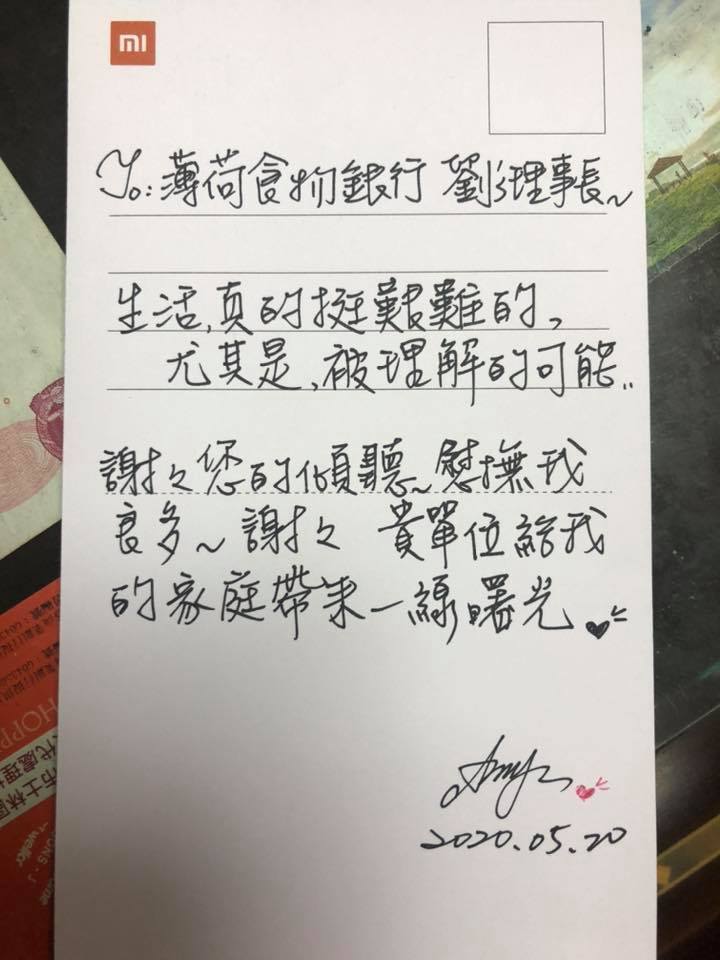 MI
To: 薄荷食物銀行 劉理事長~
生活,真的挺艱難的,
尤其是,被理解的可能..
謝々您的傾聽~慰撫我
良多~謝々 貴單位給我
的家庭帶來一線曙光
Amy
2020.05.20
HOPP
代處理
市士林區